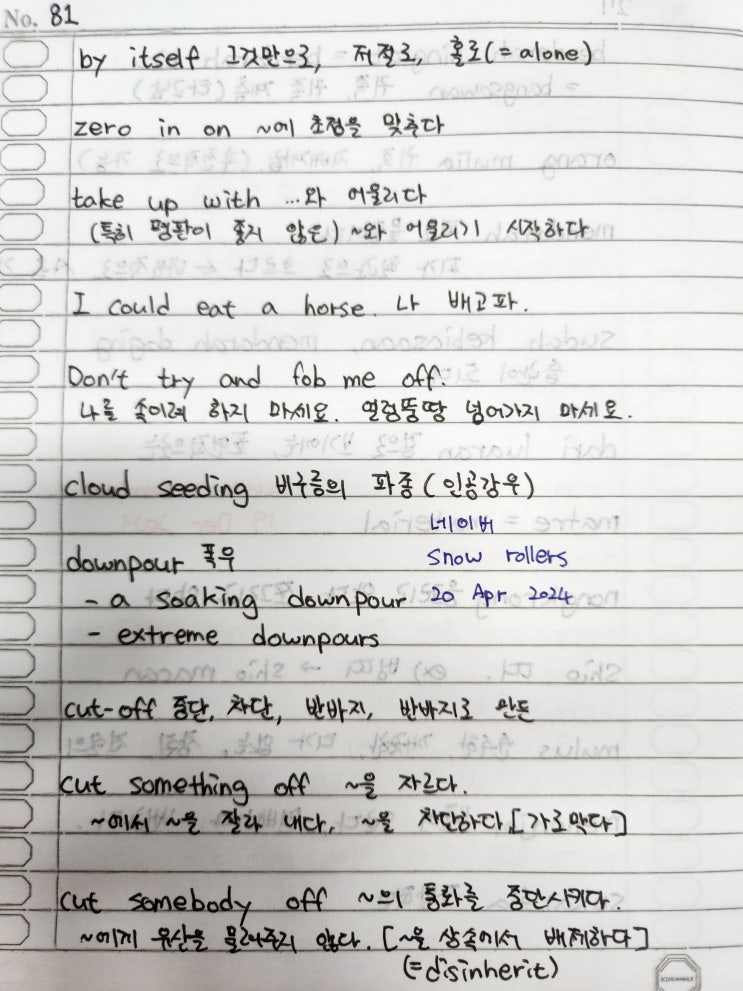 No. 81
by itself 그것만으로, 저절로, 홀로(= alone)
zero in on ~에 초점을 맞추다
take up with ...와 어울리다
(특히 평판이 좋지 않은) ~와 어울리기 시작하다
I could eat a horse. 나 배고파.
Don't try and fob me off.
나를 속이려 하지 마세요. 얼렁뚱땅 넘어가지 마세요.
cloud seeding 비구름의 파종 (인공강우)
네이버
downpour 폭우 snow rollers
- a soaking downpour 20 Apr 2024
- extreme downpours
cut-off 중단, 차단, 반바지, 반바지로 만든
cut something off ~을 자르다.
~에서 ~을 잘라 내다, ~을 차단하다 [가로막다]
cut somebody off ~의 통화를 중단시키다.
~에게 유산을 물려주지 않다. [~을 상속에서 배제하다]
(= disinherit)